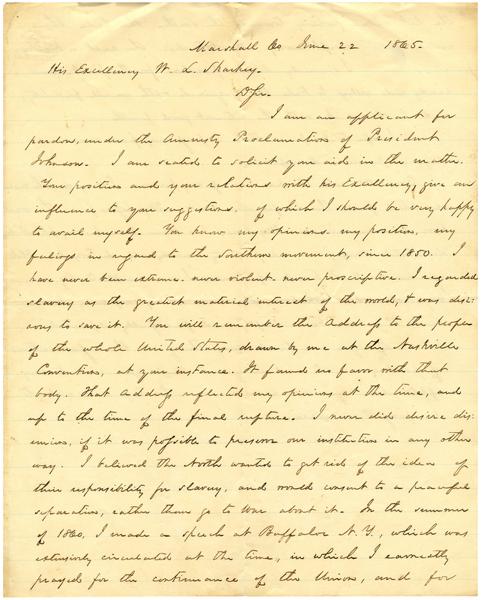 Marshall Co June 22 1865.
His Excellency W. L. Sharkey.
D Sir.
I am an applicant for
pardon, under the Amnesty Proclamation of President
Johnson. I am seated to solicit your aid in the matter.
Your position and your relations with his Excellency, give an
influence to your suggestions. of which I should be very happy
to avail myself. You know my opinions. my position, my
feelings in regard to the Southern movement, since 1850. I
have never been extreme. never violent. never proscriptive. I regarded
slavery as the greatest material interest of the world, & was desi-
rous to save it. You will remember the Address to the people
of the whole United States, drawn by me at the Nashville
Convention, at your instance. It found no favor with that
body. That Address reflected my opinions at the time, and
up to the time of the final rupture. I never did desire dis-
union, if it was possible to preserve our institution in any other
way. I believed the North wanted to get rid of the idea of
their responsibility for slavery, and would consent to a peaceful
separation, rather than go to war about it. In the summer
of 1860, I made a speech at Buffaloe N. Y., which was
extensively circulated at the time, in which I earnestly
prayed for the continuance of the Union, and for